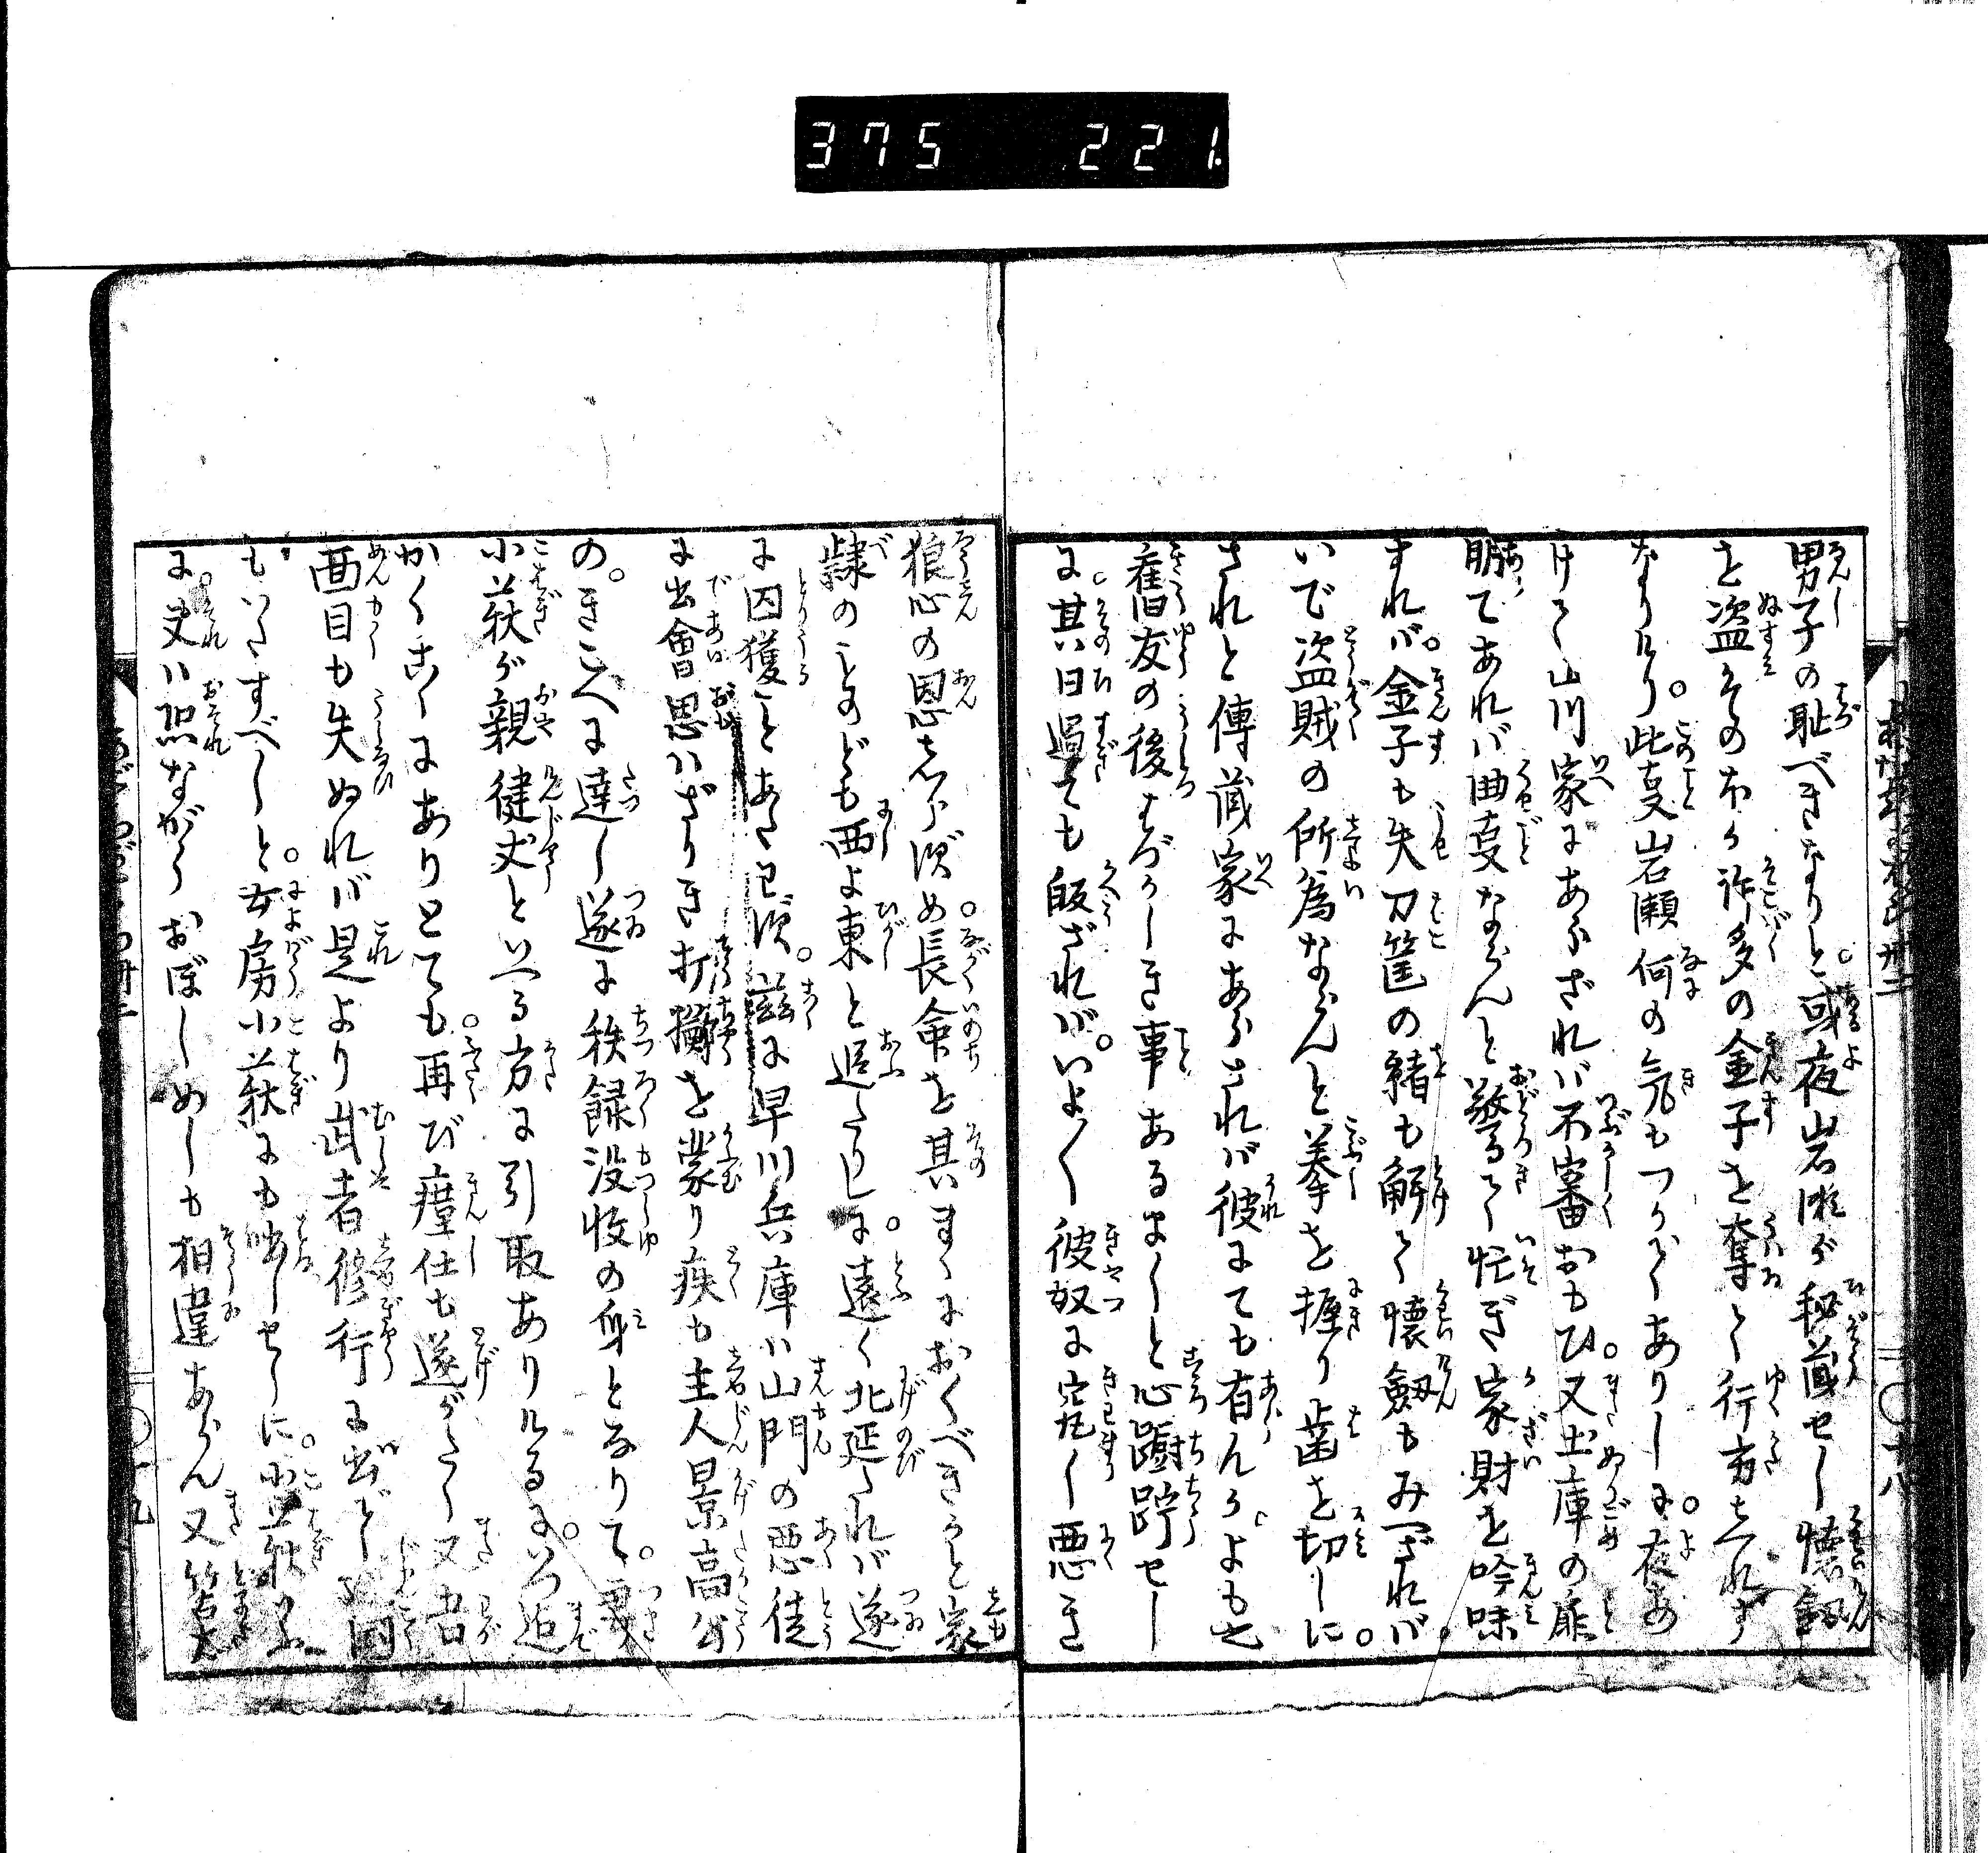 375 221
男子の耻べきなりと。或夜岩瀬が秘蔵せし懐釼
を盗みそのほか許多の金子を奪て行方しれず
なりけり。此事岩瀬何の気もつかでありしに。夜あ
けて山川家にあらざれバ不審おもひ。又土庫の扉
明てあれバ曲事ならんと驚て忙ぎ家財を吟味
すれバ。金子も失刀筐の緒も解て懐劔もみへざれバ。
いで盗賊の所為ならんと拳を握り歯を切しに。
されど傳蔵家にあらされバ彼にても有んかよも也
舊友の後はづかしき事あるまじと心躊躇せし
に。其ハ日過ても皈ざれバ。いよ〱彼奴に究し悪き
狼心の恩しらず め。長命を其まゝにおくべきかと家
隷のものども西よ東と追たりしに。遠く北延たれバ遂
に囚獲ことあたはず。茲に早川兵庫ハ山門の悪徒
に出會思ハざりき打擲を蒙り疾も主人景高公
の。きこへに達し遂に秩録没收の身となりて。
小萩が親健丈といへる方に引取ありけるに。
かくこゝにありとても。再び 仕も遂がたく又吾
面目も失ぬれバ是より武者修行に出
もいたすべしと。女房小萩にも咄しせしに。小萩
に。夫ハ恐ながらおぼしめしも相違あらん又